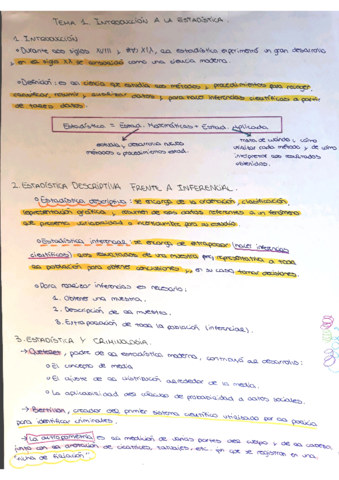 TEMA 1. INTRODUCCIÓN A LA ESTADÍSTICA.
1. INTRODUCCIÓN
Durante los siglos XVIII y XIX, la estadística experimentó un gran desarrollo
y en el siglo XX se consolidó como una ciencia moderna.
Definición: es la ciencia que estudia los métodos y procedimientos para recoger,
clasificar, resumir y analizar datos y para hacer inferencias científicas a partir
de tales datos.
Estadística = Estad. Matemáticas + Estad. Aplicada
estudia y desarrolla nuevos
métodos o procedimientos estad.
trata de cuándo y cómo
utilizar cada método y de cómo
interpretar los resultados
obtenidos.
2. ESTADÍSTICA DESCRIPTIVA FRENTE A INFERENCIAL.
Estadística descriptiva: se encarga de la ordenación, clasificación,
representación gráfica y resumen de los datos referentes a un fenómeno
que presenta variabilidad o incertidumbre para su estudio.
Estadística inferencial: se encarga de extrapolar (hacer inferencias
científicas) los resultados de una muestra representativa a toda
la población para obtener conclusiones y, en su caso, tomar decisiones.
Para realizar inferencias es necesario:
1. Obtener una muestra.
2. Descripción de la muestra.
3. Extrapolación de toda la población (inferencial).
3. ESTADÍSTICA Y CRIMINOLOGÍA.
→ Quetelet, padre de la estadística moderna, contribuyó al desarrollo:
El concepto de media
El ajuste de la distribución alrededor de la media.
La aplicabilidad del cálculo de probabilidad a datos sociales.
→ Bertillon, creador del primer sistema científico utilizado por la policía
para identificar criminales.
→ La antropometría es la medición de varias partes del cuerpo y de la cabeza,
junto con la anotación de cicatrices, tatuajes, etc. en que se registran en una
"ficha de filiación"